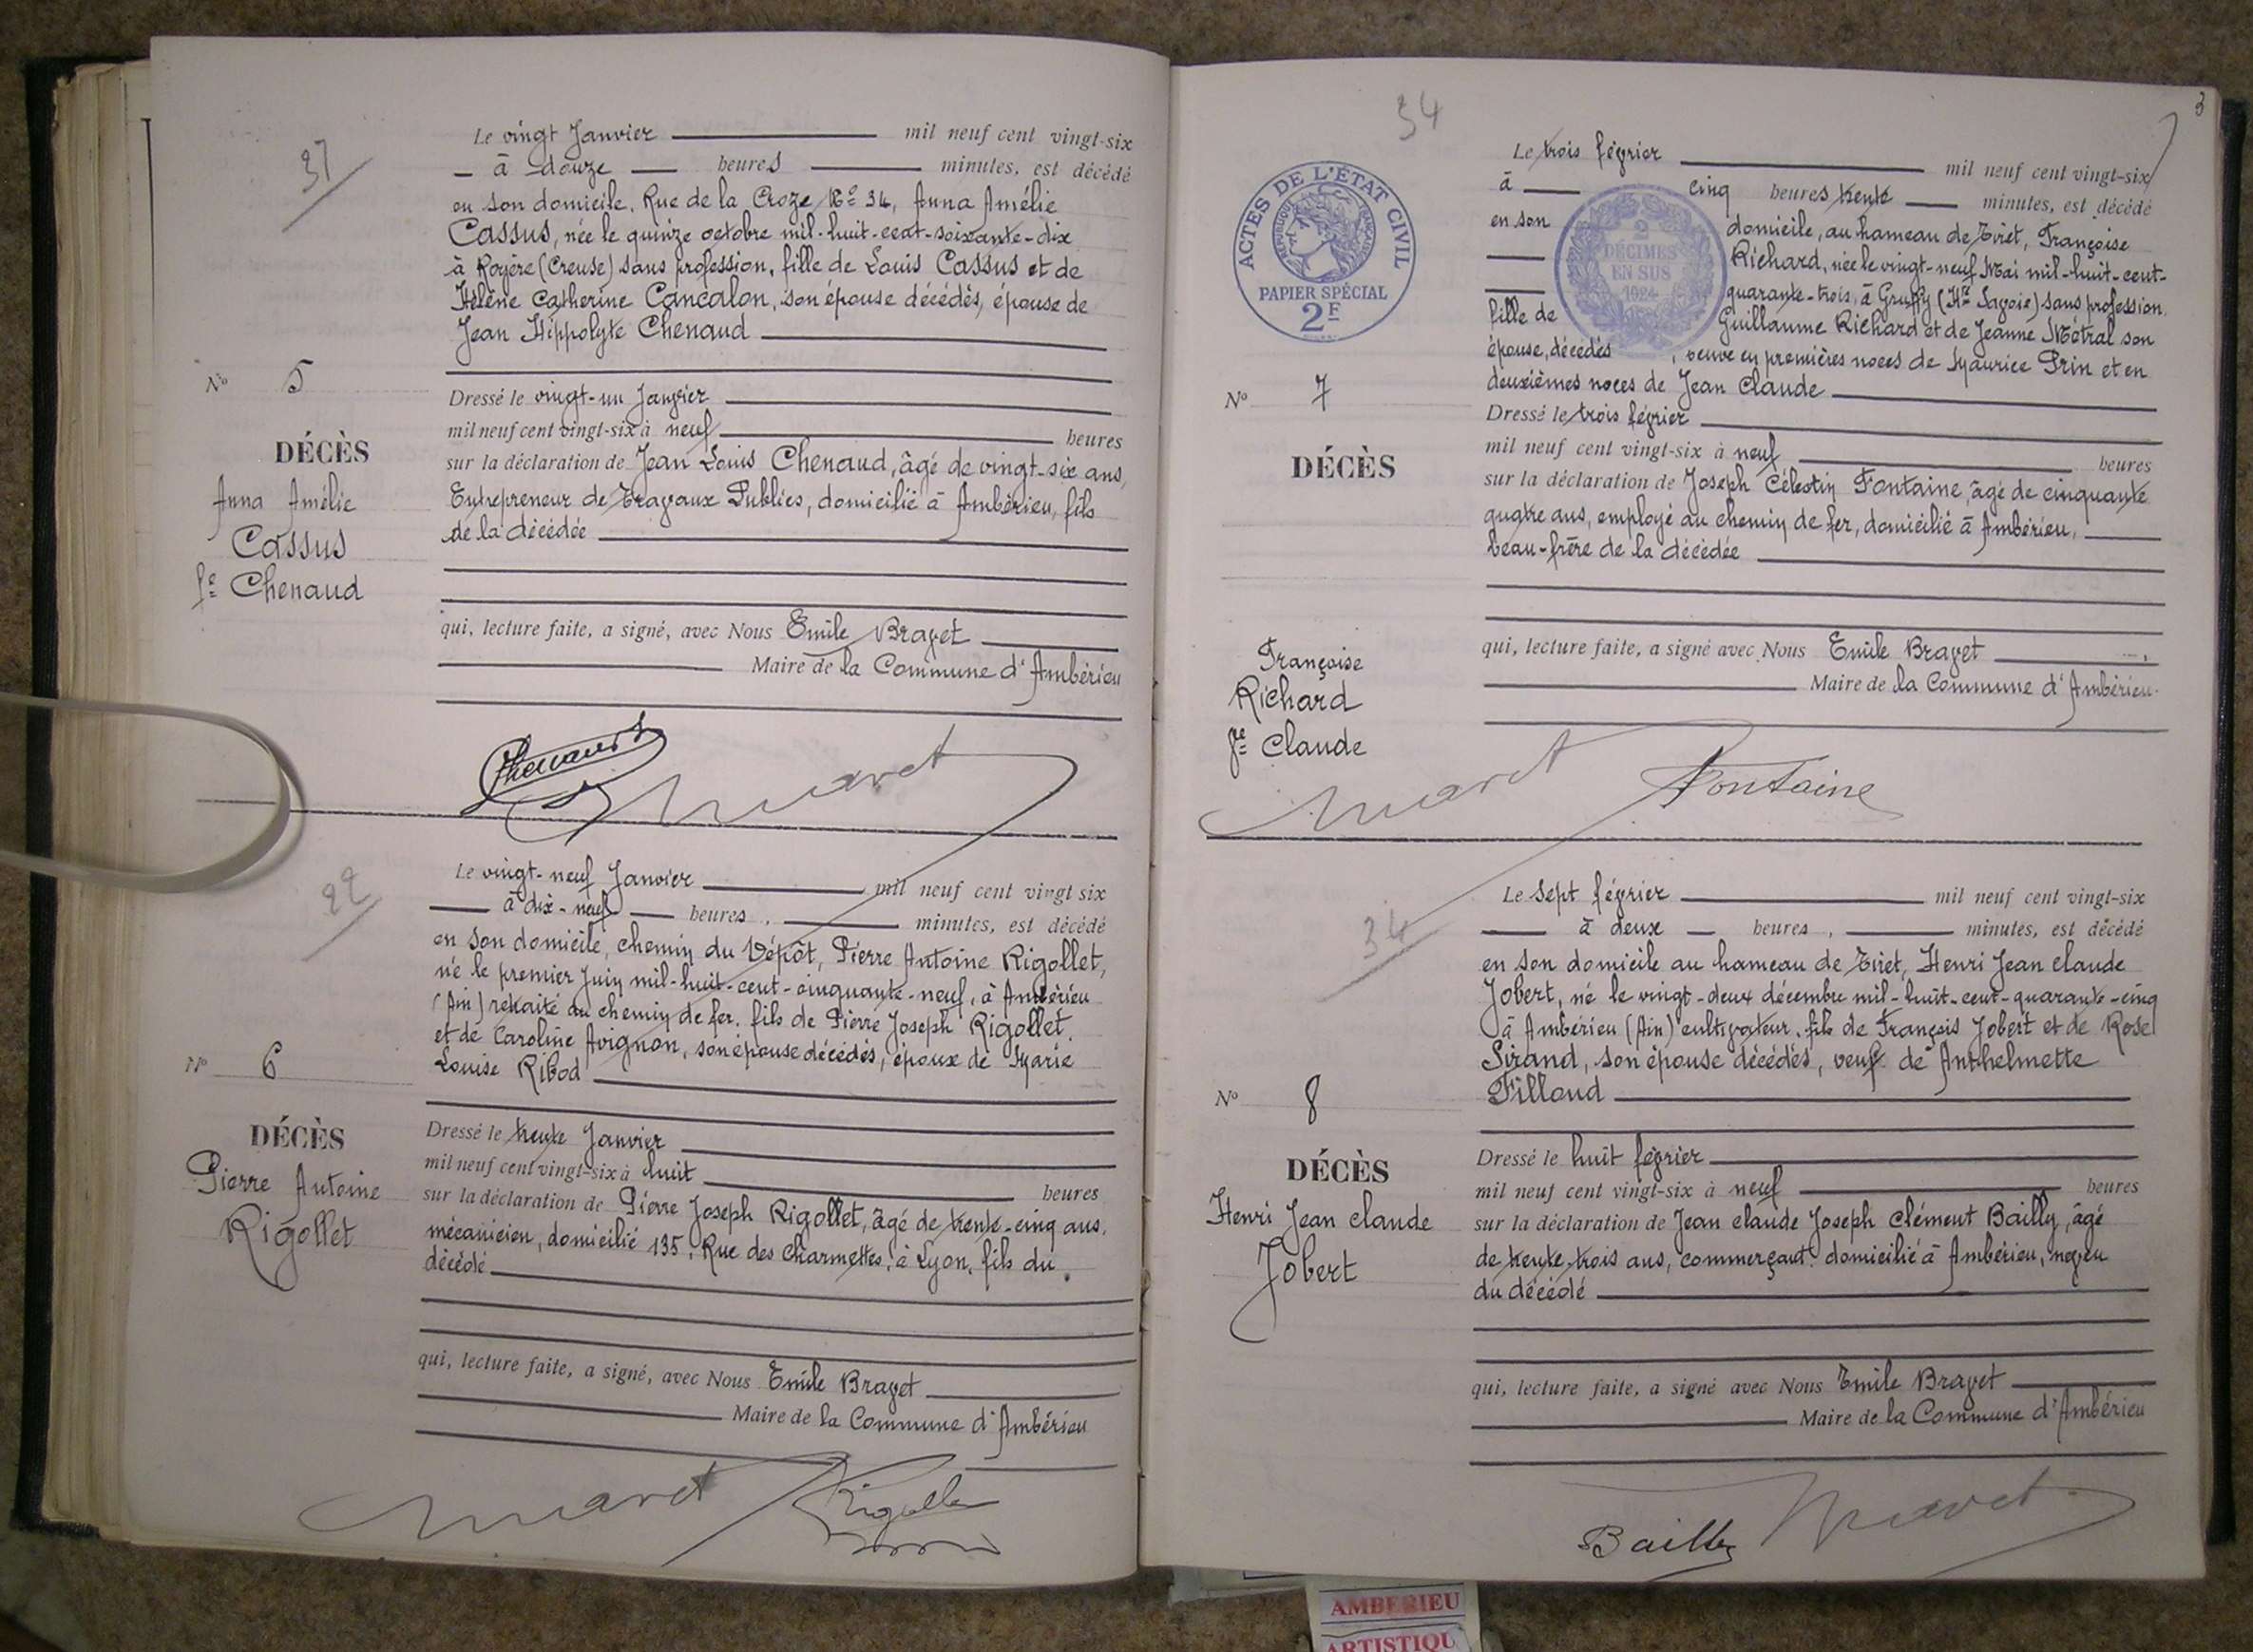 37
Le vingt Janvier mil neuf cent vingt-six
à douze heures minutes, est décédé
en son domicile, Rue de la Croze N° 34, Anna Amélie
Cassus, née le quinze octobre mil-huit-cent-soixante-dix
à Royère (Creuse) sans profession, fille de Louis Cassus et de
Hélène Catherine Cancalon, son épouse décédés, épouse de
Jean Hippolyte Chenaud
N° 5
Dressé le vingt-un Janvier
mil neuf cent vingt-six à neuf heures
DÉCÈS
sur la déclaration de Jean Louis Chenaud, âgé de vingt-six ans,
Anna Amélie
Entrepreneur de Travaux Publics, domicilié à Ambérieu, fils
Cassus
de la décédée
fe Chenaud
qui, lecture faite, a signé, avec Nous Emile Bravet
Maire de la Commune d'Ambérieu
Chenaud
Bravet
22
Le vingt-neuf Janvier mil neuf cent vingt six
à dix-neuf heures, minutes, est décédé
en son domicile, chemin du Dépôt, Pierre Antoine Rigollet,
né le premier Juin mil-huit-cent-cinquante-neuf, à Ambérieu
(Ain) retraité du chemin de fer, fils de Pierre Joseph Rigollet
et de Caroline Avignon, son épouse décédés, époux de Marie
Louise Ribod
N° 6
DÉCÈS
Dressé le trente Janvier
mil neuf cent vingt-six à huit heures
Pierre Antoine
Rigollet
sur la déclaration de Pierre Joseph Rigollet, âgé de trente-cinq ans,
mécanicien, domicilié 135, Rue des Charmettes, à Lyon, fils du
décédé
qui, lecture faite, a signé, avec Nous Emile Bravet
Maire de la Commune d'Ambérieu
Bravet Rigollet
3
34
ACTES DE L'ÉTAT CIVIL
RÉPUBLIQUE FRANÇAISE
PAPIER SPÉCIAL
2F
2
DÉCIMES
EN SUS
1924
Le trois février mil neuf cent vingt-six
à cinq heures trente minutes, est décédé
en son domicile, au hameau de Tiret, Françoise
Richard, née le vingt-neuf Mai mil-huit-cent-
quarante-trois, à Gruffy (Hte Savoie) sans profession,
fille de Guillaume Richard et de Jeanne Métral son
épouse, décédés, veuve en premières noces de Maurice Prin et en
deuxièmes noces de Jean Claude
N° 7
Dressé le trois février
mil neuf cent vingt-six à neuf heures
DÉCÈS
sur la déclaration de Joseph Célestin Fontaine, âgé de cinquante
quatre ans, employé au chemin de fer, domicilié à Ambérieu,
beau-frère de la décédée
Françoise
Richard
Ve Claude
qui, lecture faite, a signé avec Nous Emile Bravet
Maire de la Commune d'Ambérieu
Bravet Fontaine
34
Le sept février mil neuf cent vingt-six
à deux heures, minutes, est décédé
en son domicile au hameau de Tiret, Henri Jean Claude
Jobert, né le vingt-deux décembre mil-huit-cent-quarante-cinq
à Ambérieu (Ain) cultivateur, fils de François Jobert et de Rose
Sirand, son épouse décédés, veuf de Anthelmette
Filloud
N° 8
DÉCÈS
Dressé le huit février
mil neuf cent vingt-six à neuf heures
Henri Jean Claude
Jobert
sur la déclaration de Jean Claude Joseph Clément Bailly, âgé
de trente-trois ans, commerçant domicilié à Ambérieu, neveu
du décédé
qui, lecture faite, a signé avec Nous Emile Bravet
Maire de la Commune d'Ambérieu
Bailly Bravet
AMBERIEU
ARTISTIQU